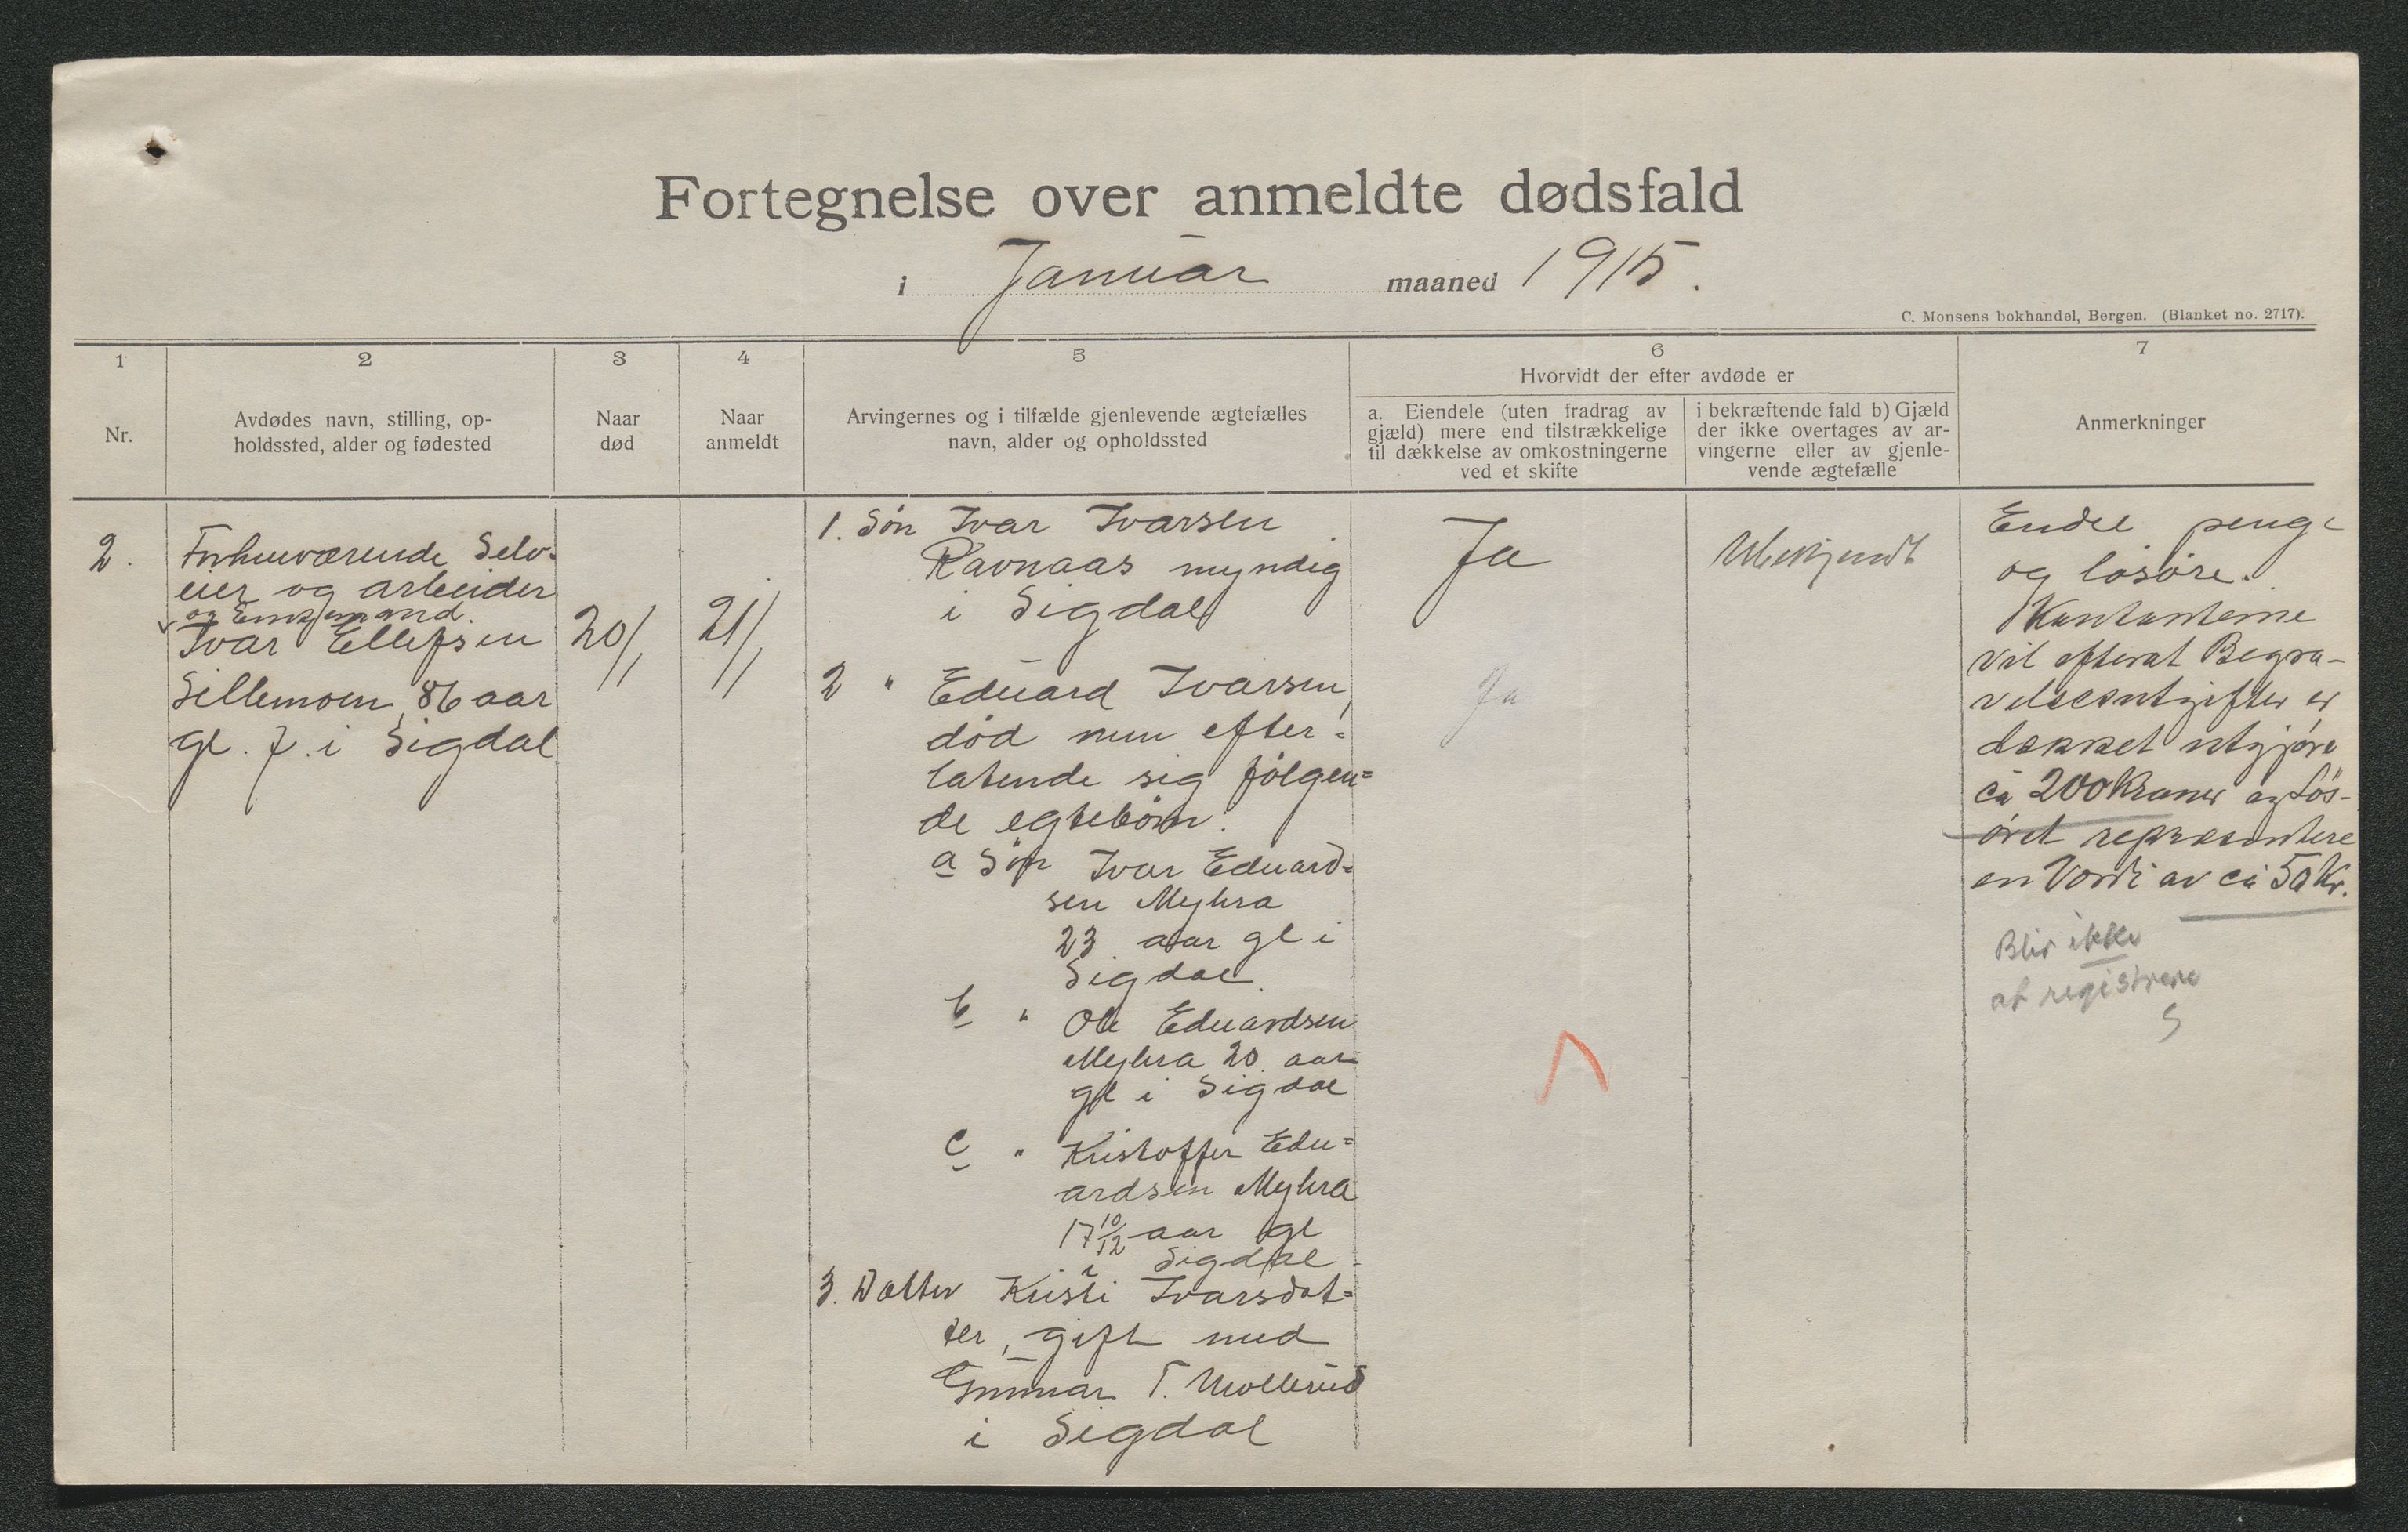 Fortegnelse over anmeldte dødsfald
i Januar maaned 1915.
C. Monsens bokhandel, Bergen. (Blanket no. 2717).
1
Nr.
2
Avdødes navn, stilling, op-
holdssted, alder og fødested
3
Naar
død
4
Naar
anmeldt
5
Arvingernes og i tilfælde gjenlevende ægtefælles
navn, alder og opholdssted
6
Hvorvidt der efter avdøde er
a. Eiendele (uten fradrag av
gjæld) mere end tilstrækkelige
til dækkelse av omkostningerne
ved et skifte
i bekræftende fald b) Gjæld
der ikke overtages av ar-
vingerne eller av gjenle-
vende ægtefælle
7
Anmerkninger
2.
Forhenværende Selv-
eier og arbeider
og Enkemand.
Ivar Ellefsen
Sillemoen, 86 aar
gl. f. i Sigdal
20/1
21/1
1. Søn Ivar Ivarsen
Ravnaas myndig
i Sigdal
2 " Eduard Ivarsen,
död men efter=
latende sig fölgen=
de egtebörn:
a Sön Ivar Eduard=
sen Myhra
23 aar gl i
Sigdal.
b " Ole Eduardsen
Myhra 20 aar
gl i Sigdal
c " Kristoffer Edu=
ardsen Myhra
17 10/12 aar gl
i Sigdal
3. Datter Kristi Ivarsdat=
ter, gift med
Gunnar T. Mollerud
i Sigdal
Ja
Ja
Ubekjendt
Endel penge
og lösöre.
Kontanterne
vil efterat Begra-
velsesutgifter er
dækket utgjøre
ca 200 Kroner og Løs-
øret repræsentere
en Værdi av ca 50 Kr.
Blir ikke
at registrere
S